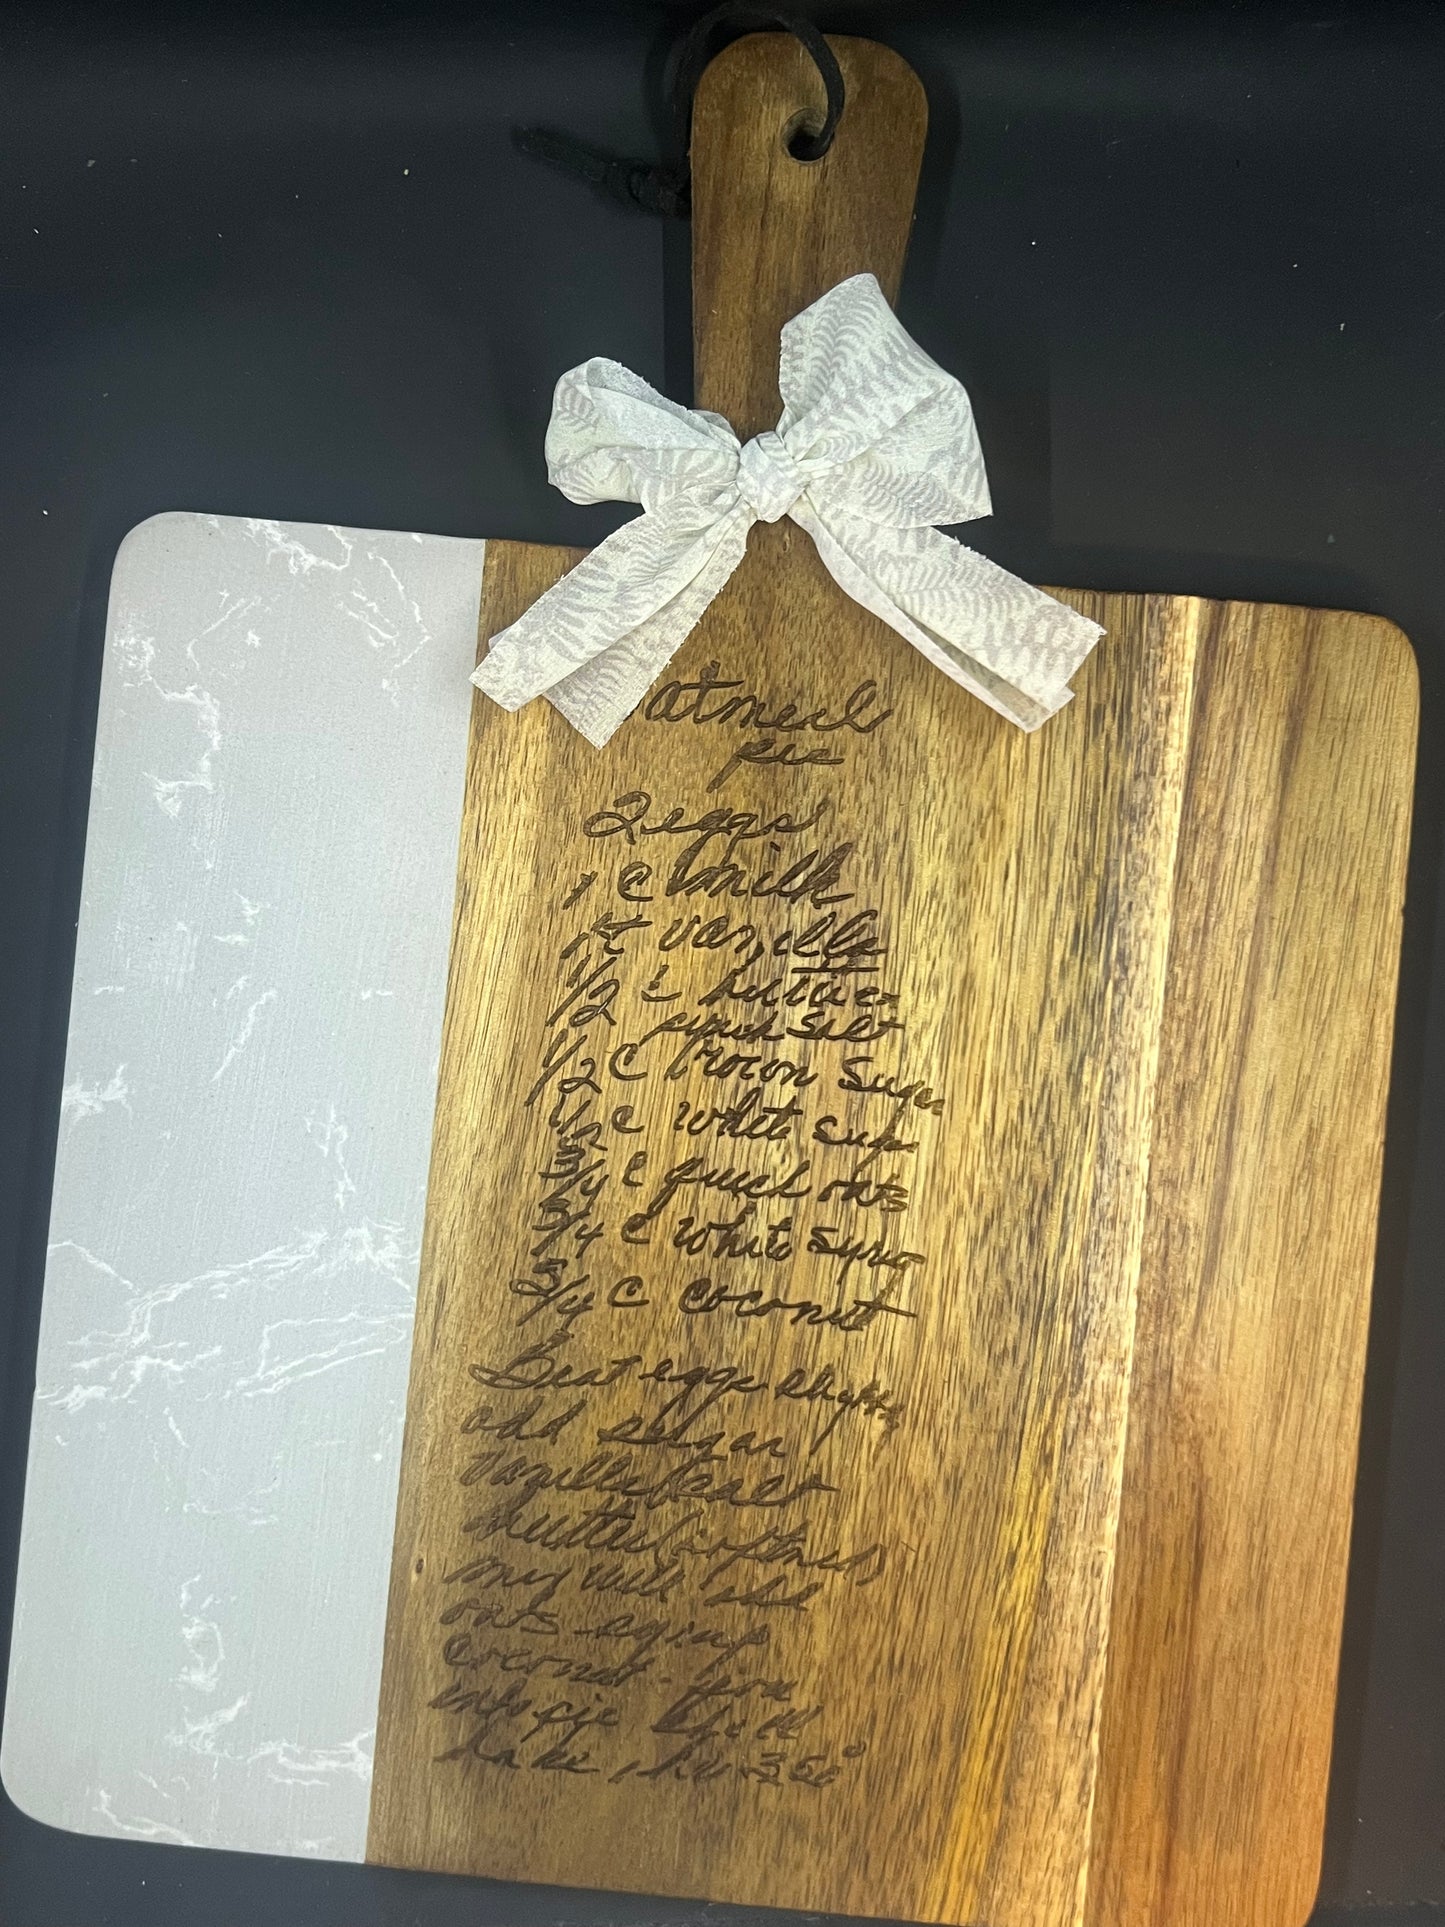 oatmeal
pie
2 eggs
1 C milk
1 t vanilla
1/2 c butter
pinch salt
1/2 C brown Sugar
1/2 C white sugar
3/4 C quick oats
3/4 C white syrup
3/4 C coconut
Beat eggs slightly
add sugar
vanilla salt
butter (softned)
mix well add
oats syrup
coconut - pour
into pie shell
bake 1 hr 350°